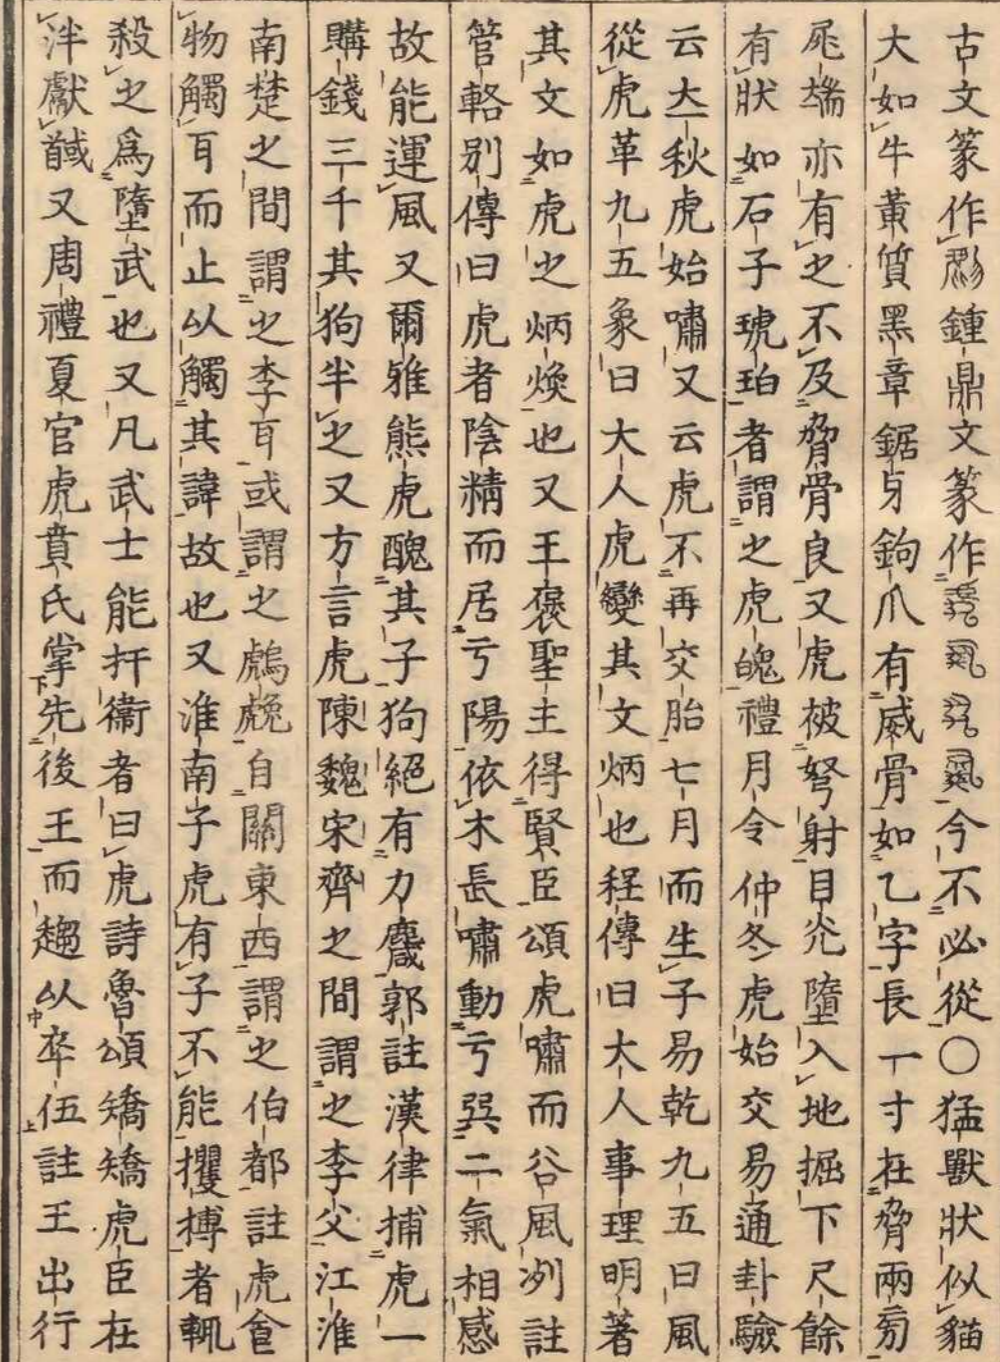 古文篆作鍾鼎文篆作今不必從○猛獸狀似貓
大如牛黃質黑章鋸牙鉤爪有威骨如乙字長一寸在脅兩旁
尾端亦有之不及脅骨良又虎被弩射目光墮入地掘下尺餘
有狀如石子琥珀者謂之虎魄禮月令仲冬虎始交易通卦驗
云立秋虎始嘯又云虎不再交胎七月而生子易乾九五曰風
從虎革九五象曰大人虎變其文炳也程傳曰大人事理明著
其文如虎之炳煥也又王褒聖主得賢臣頌虎嘯而谷風冽註
管輅別傳曰虎者陰精而居亏陽依木長嘯動亏巽二氣相感
故能運風又爾雅熊虎醜其子狗絕有力麙郭註漢律捕虎一
購錢三千其狗半之又方言虎陳魏宋齊之間謂之李父江淮
南楚之間謂之李耳或謂之䖘䖘自關東西謂之伯都註虎食
物觸耳而止以觸其諱故也又淮南子虎有子不能攫搏者輒
殺之爲墮武也又凡武士能扞衞者曰虎詩魯頌矯矯虎臣在
泮獻馘又周禮夏官虎賁氏掌先後王而趨以卒伍註王出行